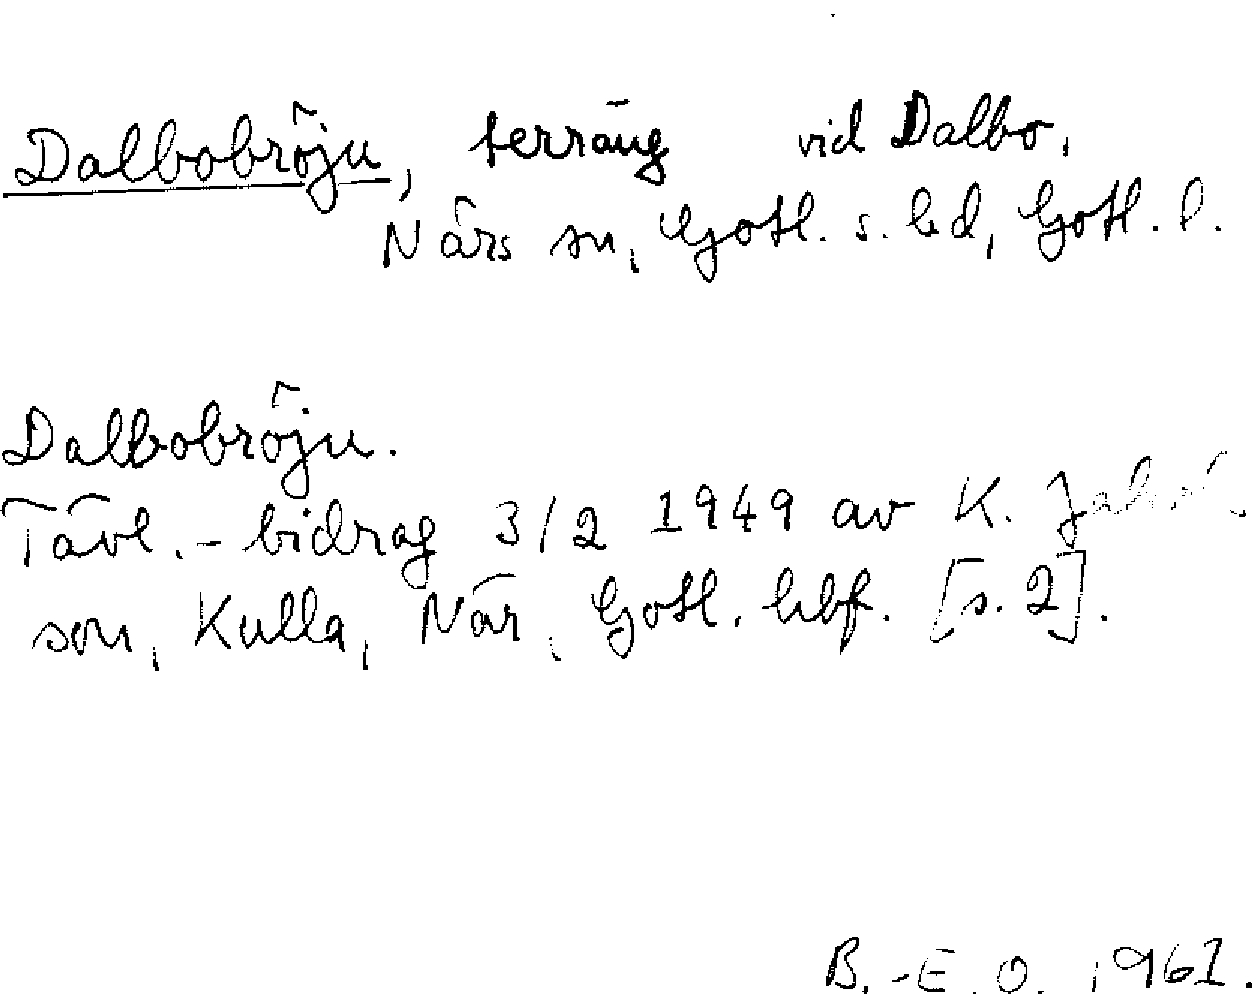 Dalbobröju, terräng vid Dalbo,
Närs sn, Gotl. s. hd, Gotl. l.
Dalbobröju.
Tävl.-bidrag 3/2 1949 av K.
son, Kulla, När, Gotl. hbf. [s. 2].
B.-E. O. 1961.